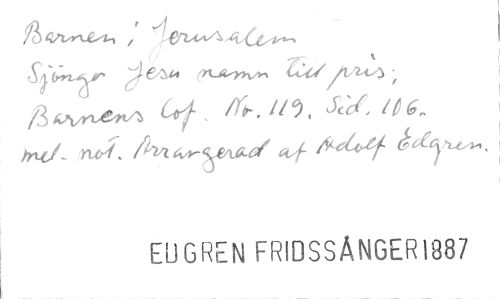 Barnen i Jerusalem
Sjöngo Jesu namn till pris;
Barnens lof. No. 119. Sid. 106.
mel. not. Arrangerad af Adolf Edgren.
EDGREN FRIDSSÅNGER 1887